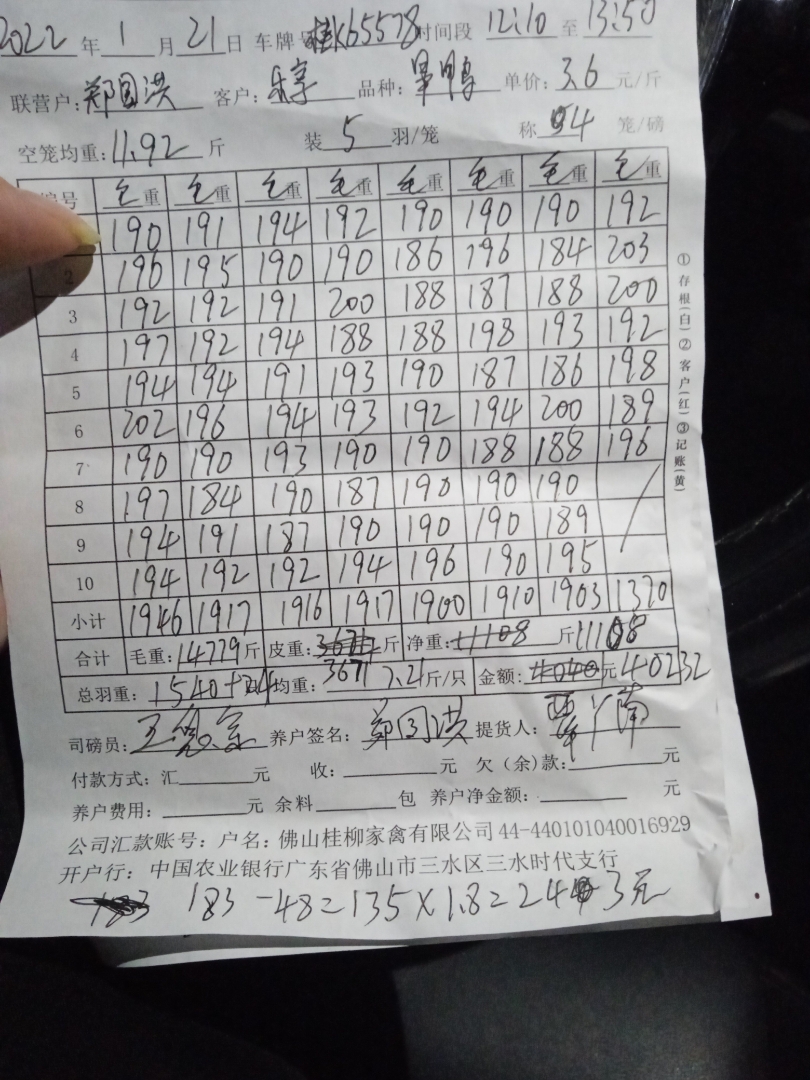 2022 年 1 月 21 日 车牌号 桂K65578 时间段 12:10 至 13:50
联营户: 郑国洪 客户: 乐享 品种: 单鸭 单价: 3.6 元/斤
空笼均重: 11.92 斤 装 5 羽/笼 称 4 笼/磅
编号 毛重 毛重 毛重 毛重 毛重 毛重 毛重 毛重
190 191 194 192 190 190 190 192
2 196 195 190 190 186 196 184 203
3 192 192 191 200 188 187 188 200
4 197 192 194 188 188 198 193 192
5 194 194 191 193 190 187 186 198
6 202 196 194 193 192 194 200 189
7 190 190 193 190 190 188 188 196
8 197 184 190 187 190 190 190
9 194 191 187 190 190 190 189
10 194 192 192 194 196 190 195
小计 1946 1917 1916 1917 1900 1910 1903 1370
合计 毛重: 14779 斤 皮重: 3671 斤 净重: 11108 斤 11108
总羽重: 1540 均重: 7.21 斤/只 金额: 元 40232
司磅员: 养户签名: 郑国洪 提货人:
付款方式: 汇 元 收: 元 欠(余)款: 元
养户费用: 元 余料 包 养户净金额: 元
公司汇款账号: 户名: 佛山桂柳家禽有限公司 44-440101040016929
开户行: 中国农业银行广东省佛山市三水区三水时代支行
183 - 48 = 135 × 1.8 = 243元
①存根(白)②客户(红)③记账(黄)